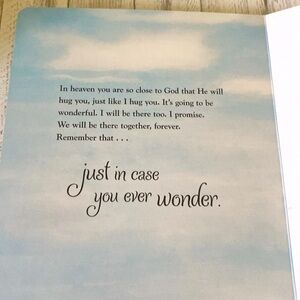 In heaven you are so close to God that He will
hug you, just like I hug you. It's going to be
wonderful. I will be there too. I promise.
We will be there together, forever.
Remember that . . .
just in case
you ever wonder.